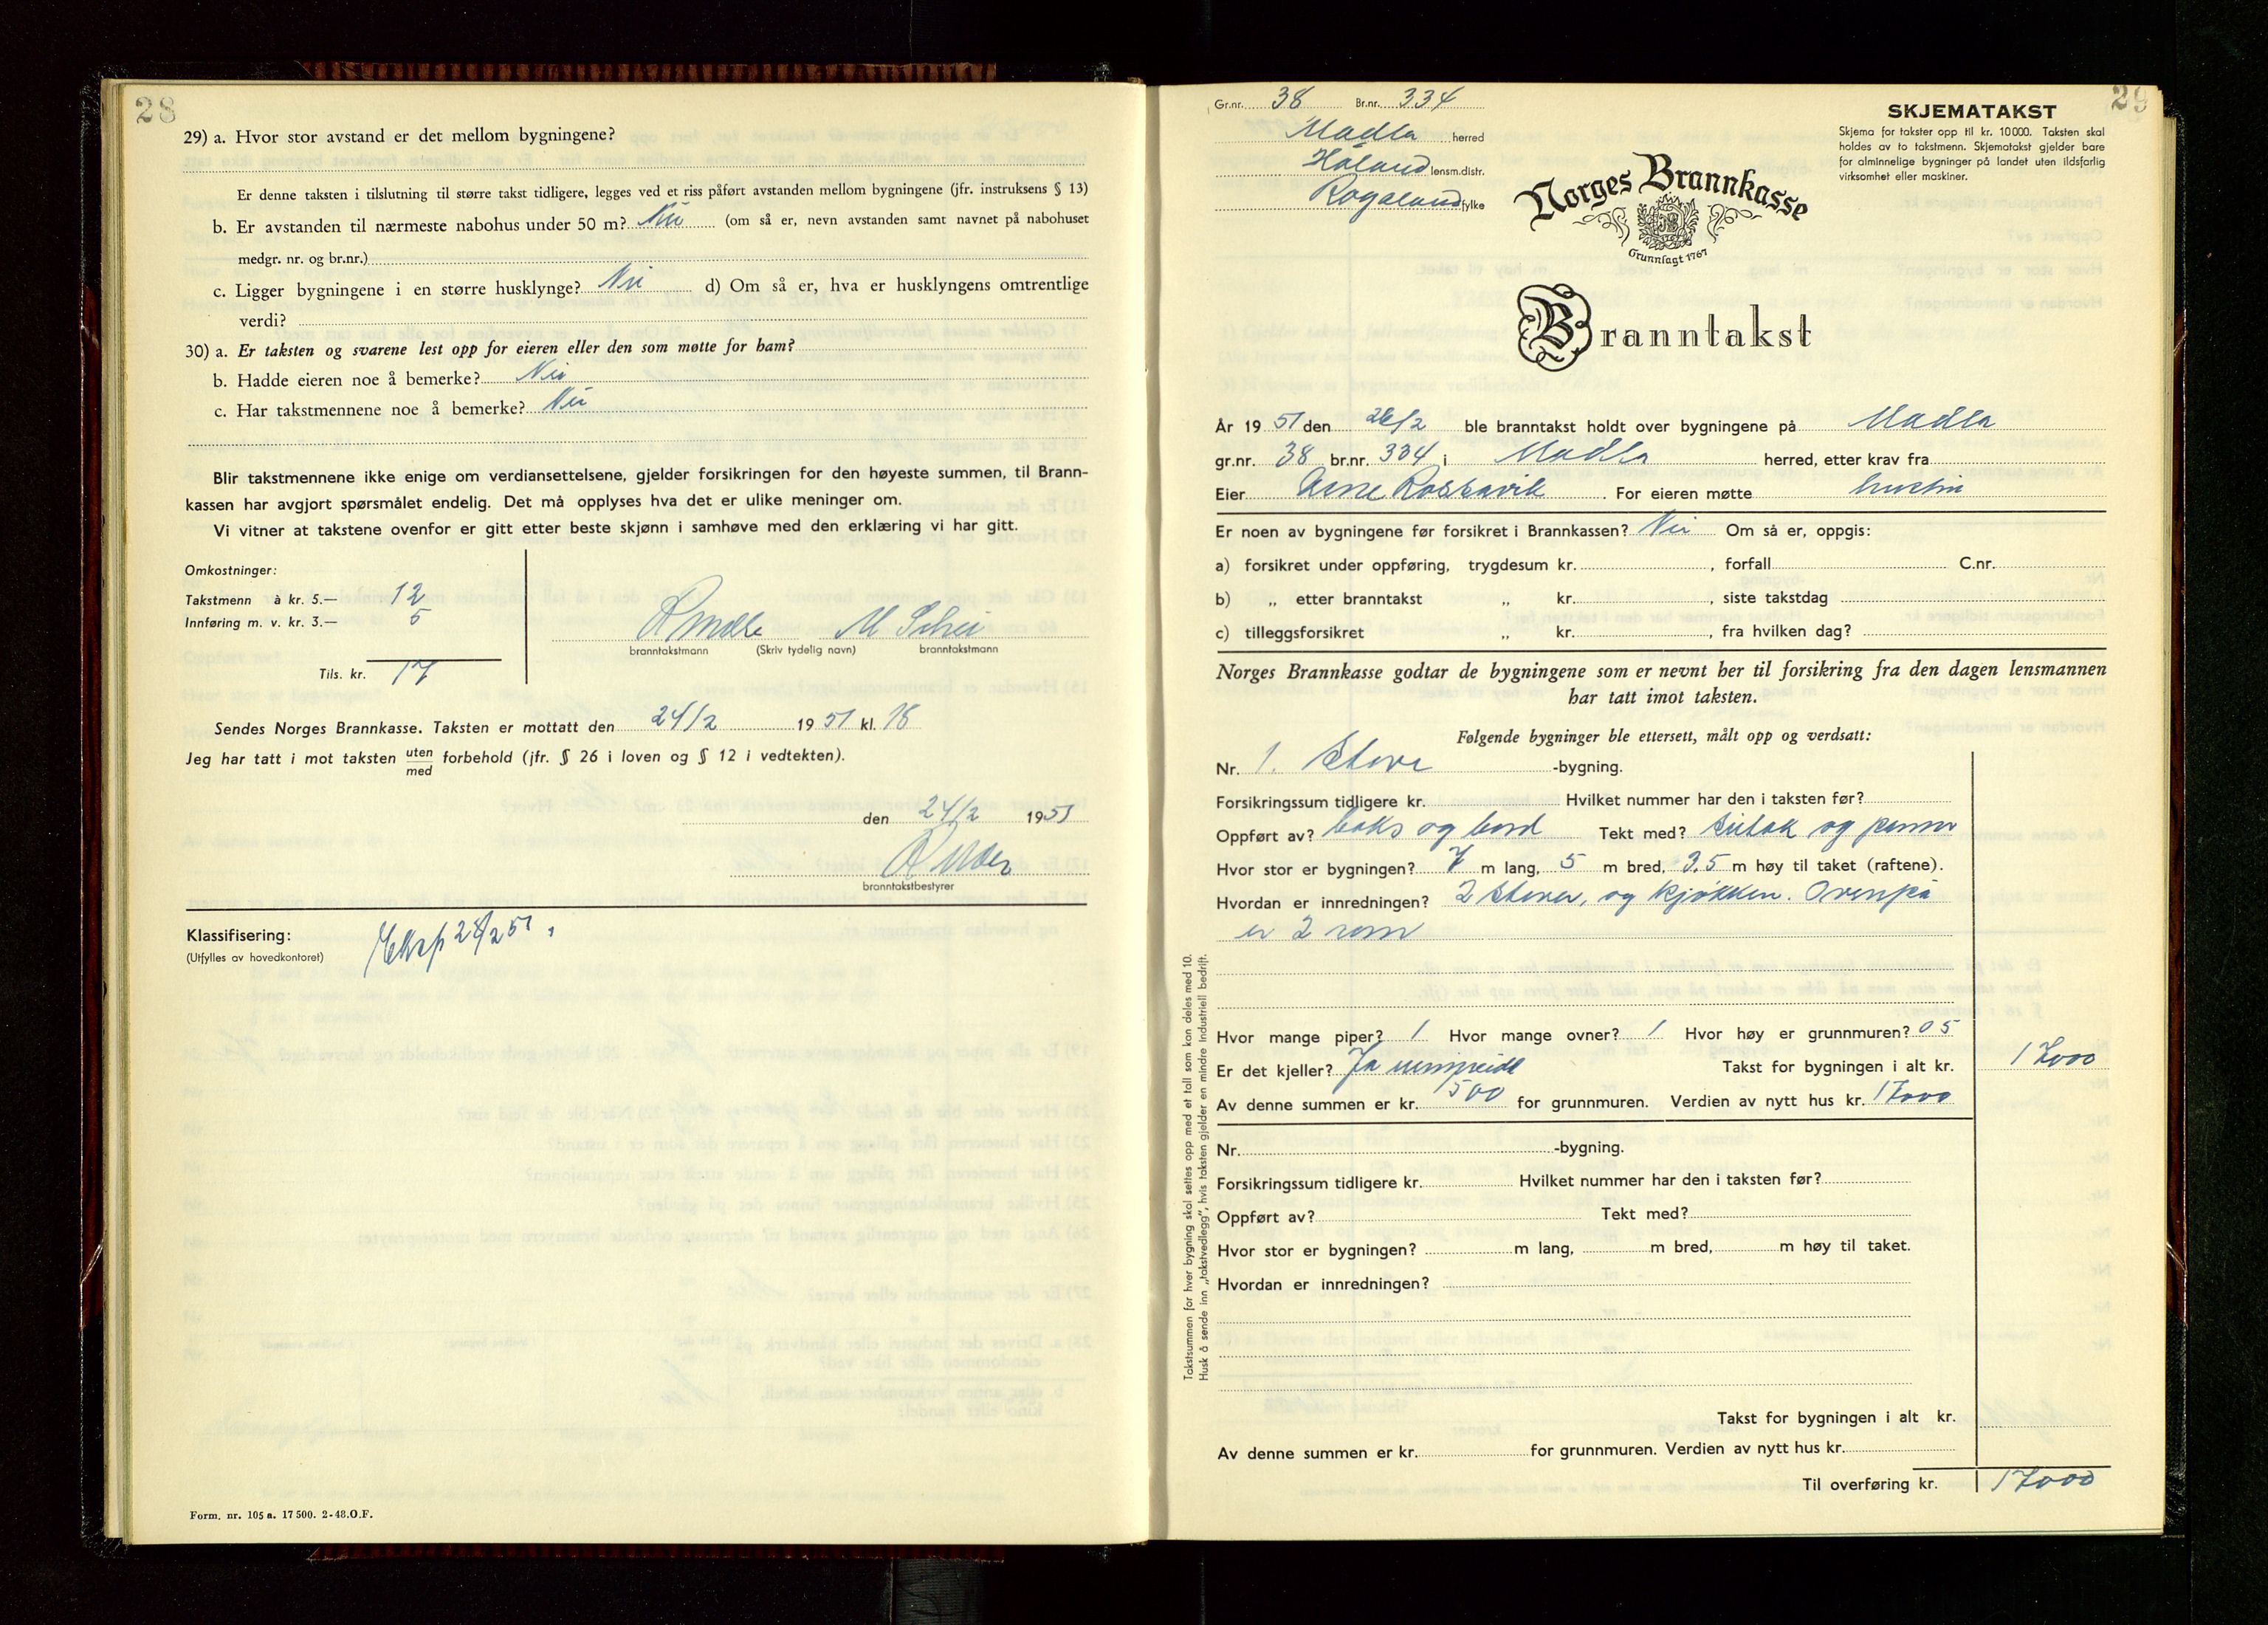 28
29) a. Hvor stor avstand er det mellom bygningene?
Er denne taksten i tilslutning til større takst tidligere, legges ved et riss påført avstanden mellom bygningene (jfr. instruksens § 13)
b. Er avstanden til nærmeste nabohus under 50 m? Nei (om så er, nevn avstanden samt navnet på nabohuset
medgr. nr. og br.nr.)
c. Ligger bygningene i en større husklynge? Nei d) Om så er, hva er husklyngens omtrentlige
verdi?
30) a. Er taksten og svarene lest opp for eieren eller den som møtte for ham?
b. Hadde eieren noe å bemerke? Nei
c. Har takstmennene noe å bemerke? Nei
Blir takstmennene ikke enige om verdiansettelsene, gjelder forsikringen for den høyeste summen, til Brann-
kassen har avgjort spørsmålet endelig. Det må opplyses hva det er ulike meninger om.
Vi vitner at takstene ovenfor er gitt etter beste skjønn i samhøve med den erklæring vi har gitt.
Omkostninger:
Takstmenn à kr. 5.— 12
Innføring m. v. kr. 3.— 5
Tils. kr. 17
M
branntakstmann (Skriv tydelig navn) branntakstmann
Sendes Norges Brannkasse. Taksten er mottatt den 24/2 1951 kl. 18
Jeg har tatt i mot taksten uten/med forbehold (jfr. § 26 i loven og § 12 i vedtekten).
den 24/2 1951
branntakstbestyrer
Klassifisering:
(Utfylles av hovedkontoret)
Form. nr. 105 a. 17 500. 2-48.O.F.
29
Gr.nr. 38 Br.nr. 334
Madla herred
Håland lensm.distr.
Rogaland fylke
SKJEMATAKST
Skjema for takster opp til kr. 10 000. Taksten skal
holdes av to takstmenn. Skjematakst gjelder bare
for alminnelige bygninger på landet uten ildsfarlig
virksomhet eller maskiner.
Norges Brannkasse
Grunnlagt 1767
Branntakst
År 1951 den /2 ble branntakst holdt over bygningene på Madla
gr.nr. 38 br.nr. 334 i Madla herred, etter krav fra
Eier Arne Rossavik. For eieren møtte hustru
Er noen av bygningene før forsikret i Brannkassen? Nei Om så er, oppgis:
a) forsikret under oppføring, trygdesum kr. , forfall C.nr.
b) „ etter branntakst „ kr. , siste takstdag
c) tilleggsforsikret „ kr. , fra hvilken dag?
Norges Brannkasse godtar de bygningene som er nevnt her til forsikring fra den dagen lensmannen
har tatt imot taksten.
Følgende bygninger ble ettersett, målt opp og verdsatt:
Nr. 1. Stove -bygning.
Forsikringssum tidligere kr. Hvilket nummer har den i taksten før?
Oppført av? og bord Tekt med? sutak og panner
Hvor stor er bygningen? 7 m lang, 5 m bred, 3,5 m høy til taket (raftene).
Hvordan er innredningen? 2 stover, og kjøkken. Ovenpå
er 2 rom
Hvor mange piper? 1 Hvor mange ovner? 1 Hvor høy er grunnmuren? 0 5
Er det kjeller? Ja Takst for bygningen i alt kr. 17000
Av denne summen er kr. 500 for grunnmuren. Verdien av nytt hus kr. 17000
Nr. -bygning.
Forsikringssum tidligere kr. Hvilket nummer har den i taksten før?
Oppført av? Tekt med?
Hvor stor er bygningen? m lang, m bred, m høy til taket.
Hvordan er innredningen?
Takst for bygningen i alt kr.
Av denne summen er kr. for grunnmuren. Verdien av nytt hus kr.
Til overføring kr. 17000
Takstsummen for hver bygning skal settes opp med et tall som kan deles med 10.
Husk å sende inn „takstvedlegg", hvis taksten gjelder en mindre industriell bedrift.